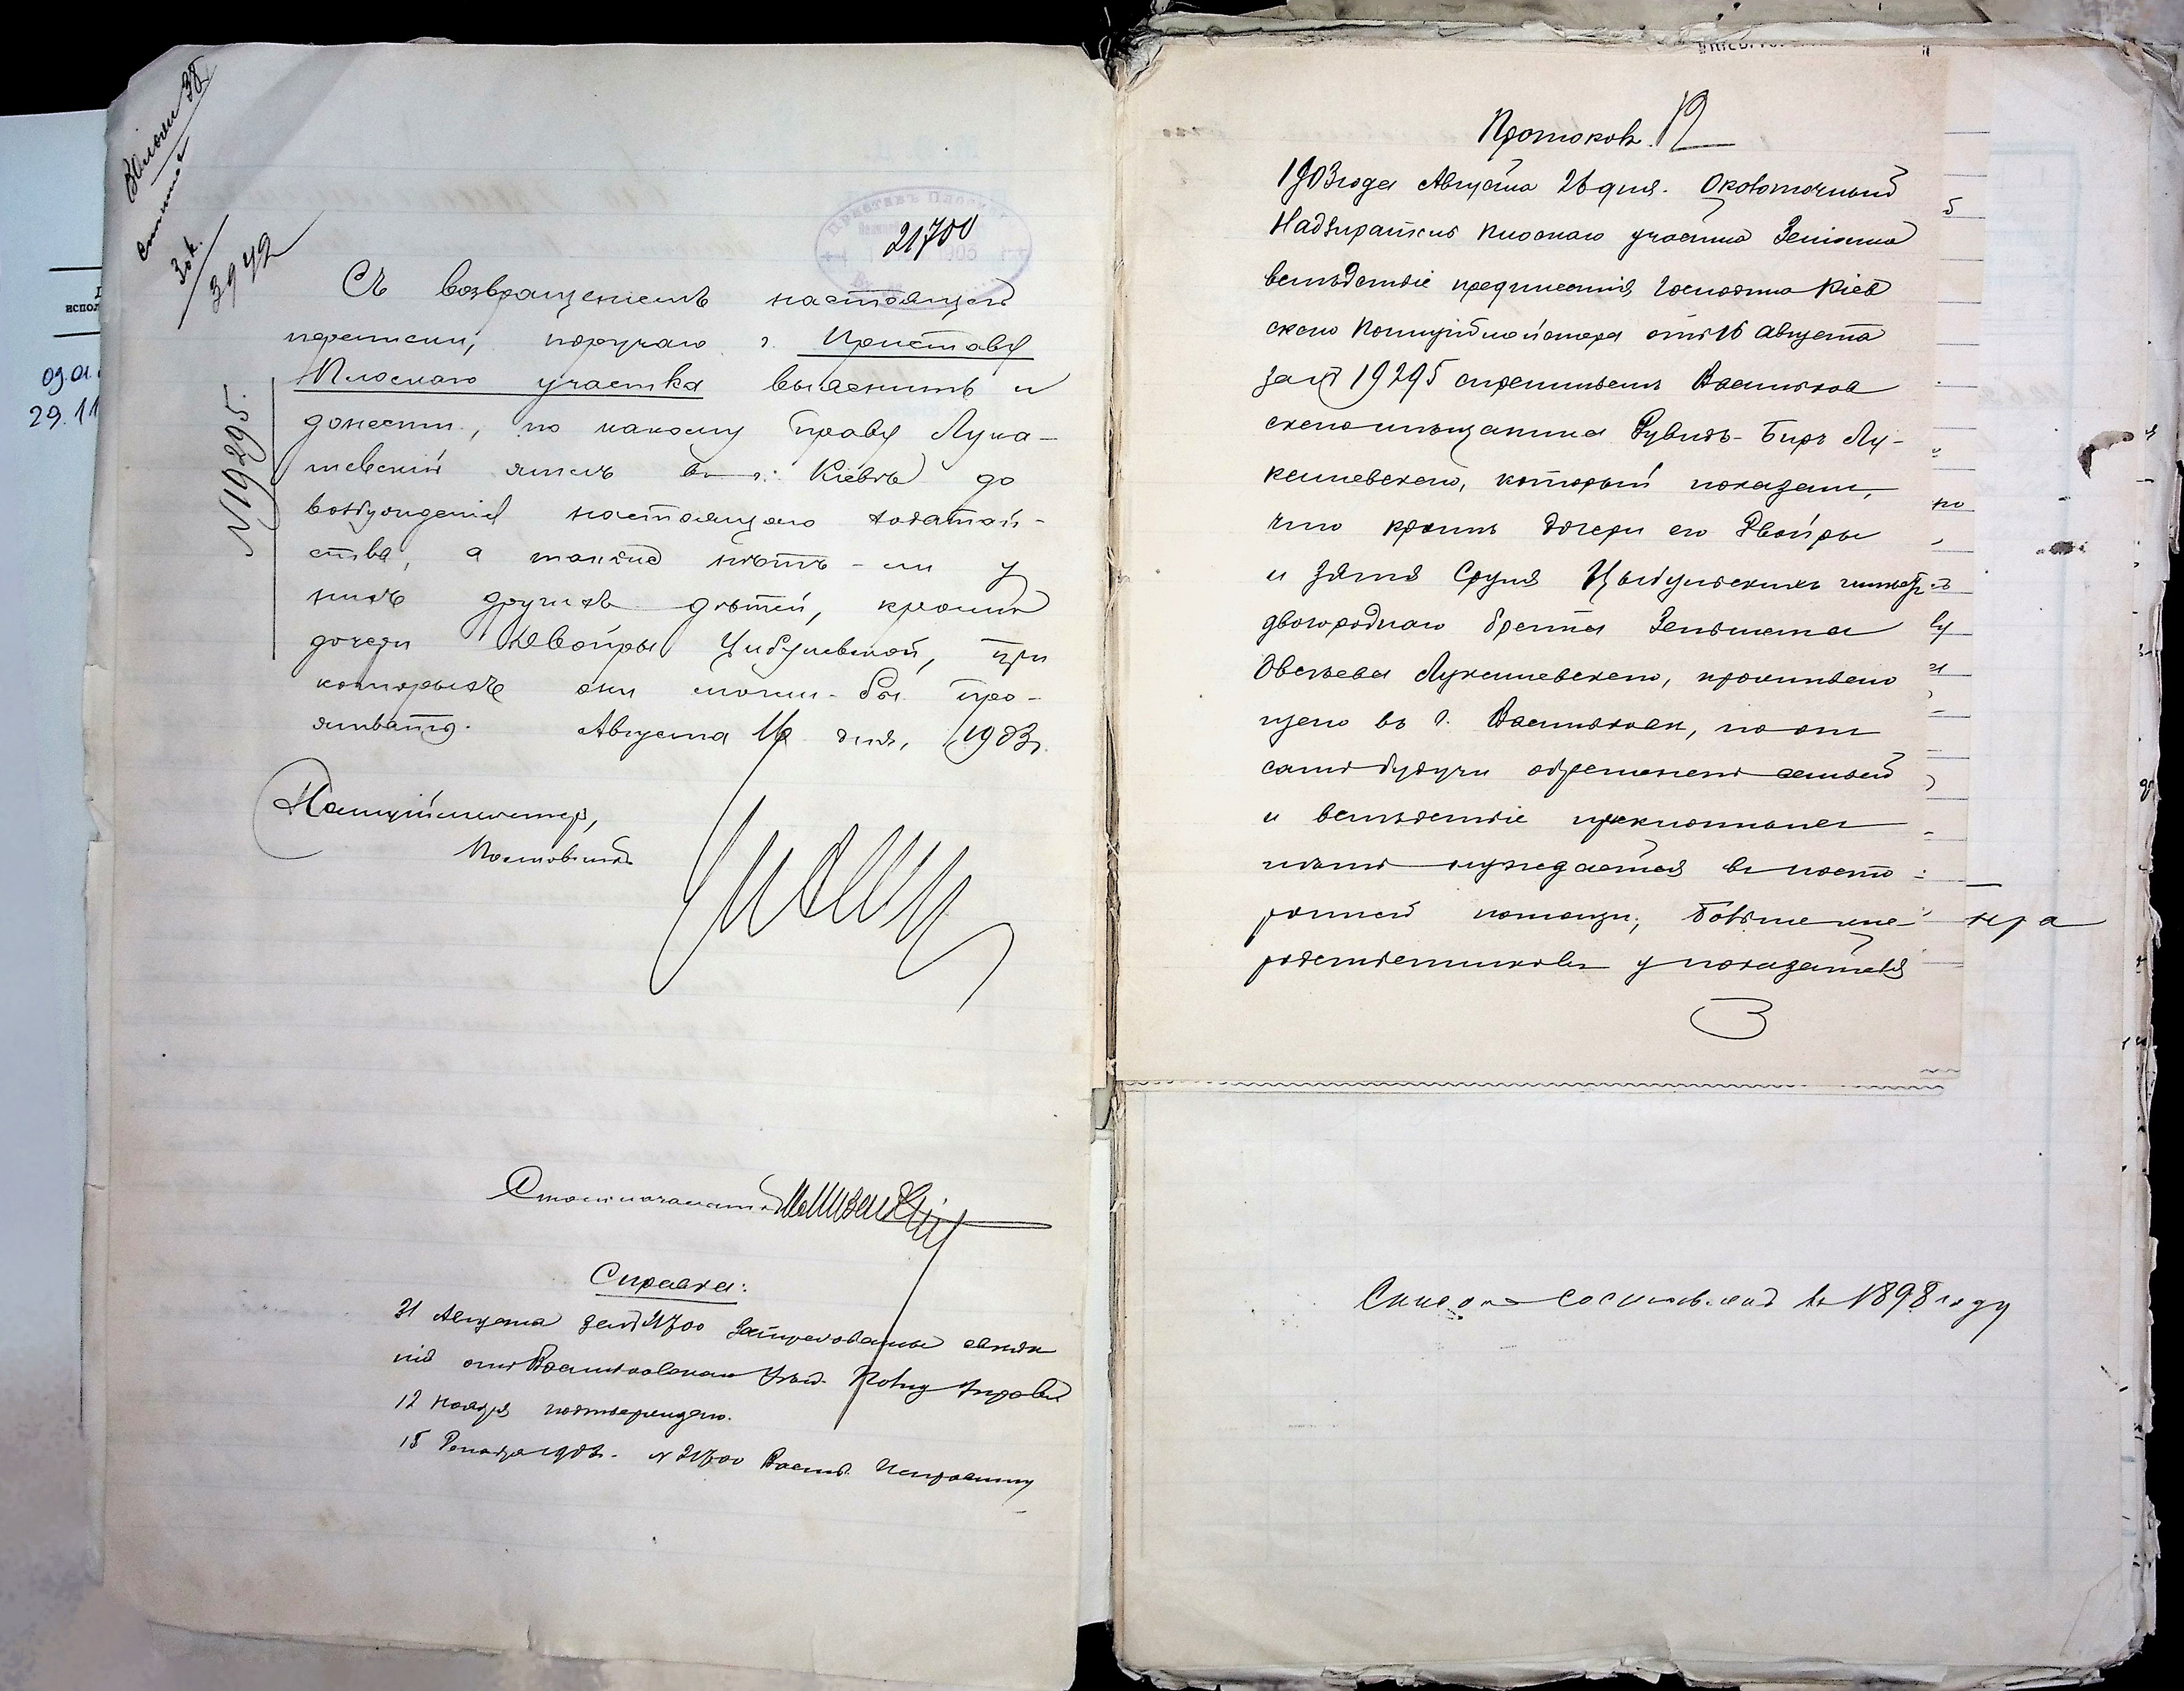 21700
Съ возвращеніемъ настоящей
переписки, поручаю г. Приставу
Плоскаго участка выяснить и
донести, по какому праву Лука-
шевскій жилъ въ г. Кіевѣ до
возбужденія настоящаго ходатай-
ства, а также нѣтъ-ли у
нихъ другихъ дѣтей, кромѣ
дочери Двойры Цибулевской, при
которыхъ они могли-бы про-
живать. Августа 16 дня, 1903 г.
№ 19295.
3942
Полиціймейстеръ,
Столоначальникъ
Справка:
31 Августа за № 21700 затребованы свѣдѣ
нія отъ Васильковскаго Уѣзд. Полиц Управл
12 Ноября подтверждено.
15 Генваря № 21700 Васил. Исправнику
Протоколъ. 12
1903 года Августа 26 дня. Околоточный
Надзиратель Плоскаго участка
вслѣдствіе предписанія Господина Кіев
скаго Полиціймейстера отъ 16 Августа
за № 19295 спрашивалъ Васильков
скаго мѣщанина Рувинъ-Беръ Лу-
кашевскаго, который показалъ,
что кромѣ дочери его Двойры
и зятя Сруля Цыбульскихъ имѣетъ
двоюроднаго брата Зельмана
Овсѣева Лукашевскаго, проживаю
щаго въ г. Васильковѣ, но онъ
самъ будучи обремененъ семьей
и вслѣдствіе преклонныхъ
лѣтъ нуждается въ посто
ронней помощи, больше же
родственниковъ у показателя
Списокъ составленъ въ 1898 году